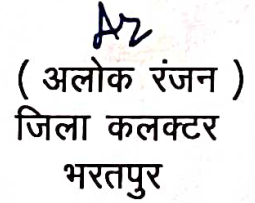 ( अलोक रंजन )
जिला कलक्टर
भरतपुर